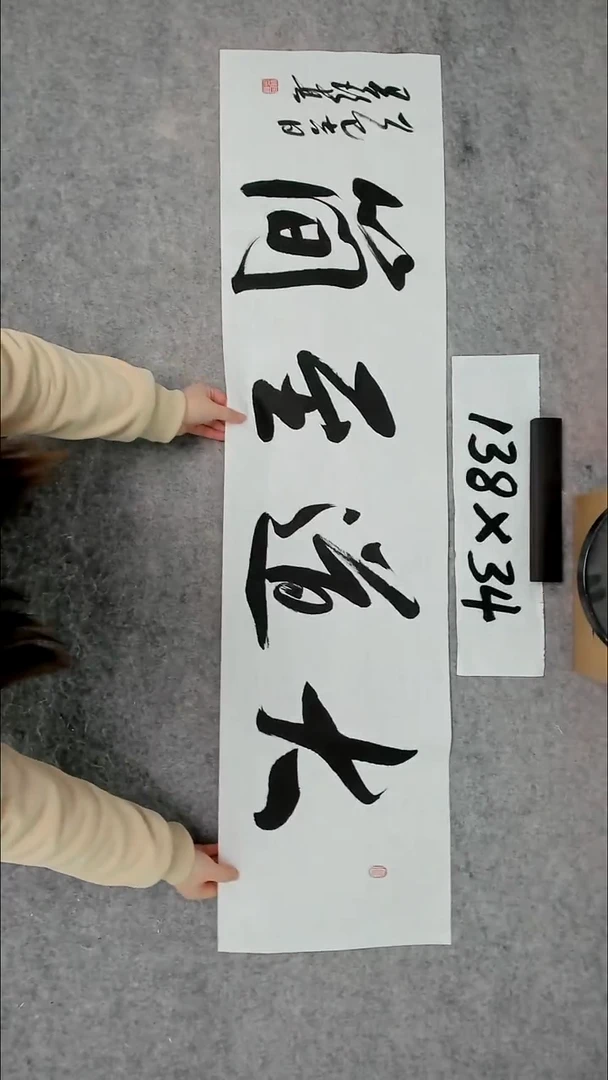 大道至简
138×34